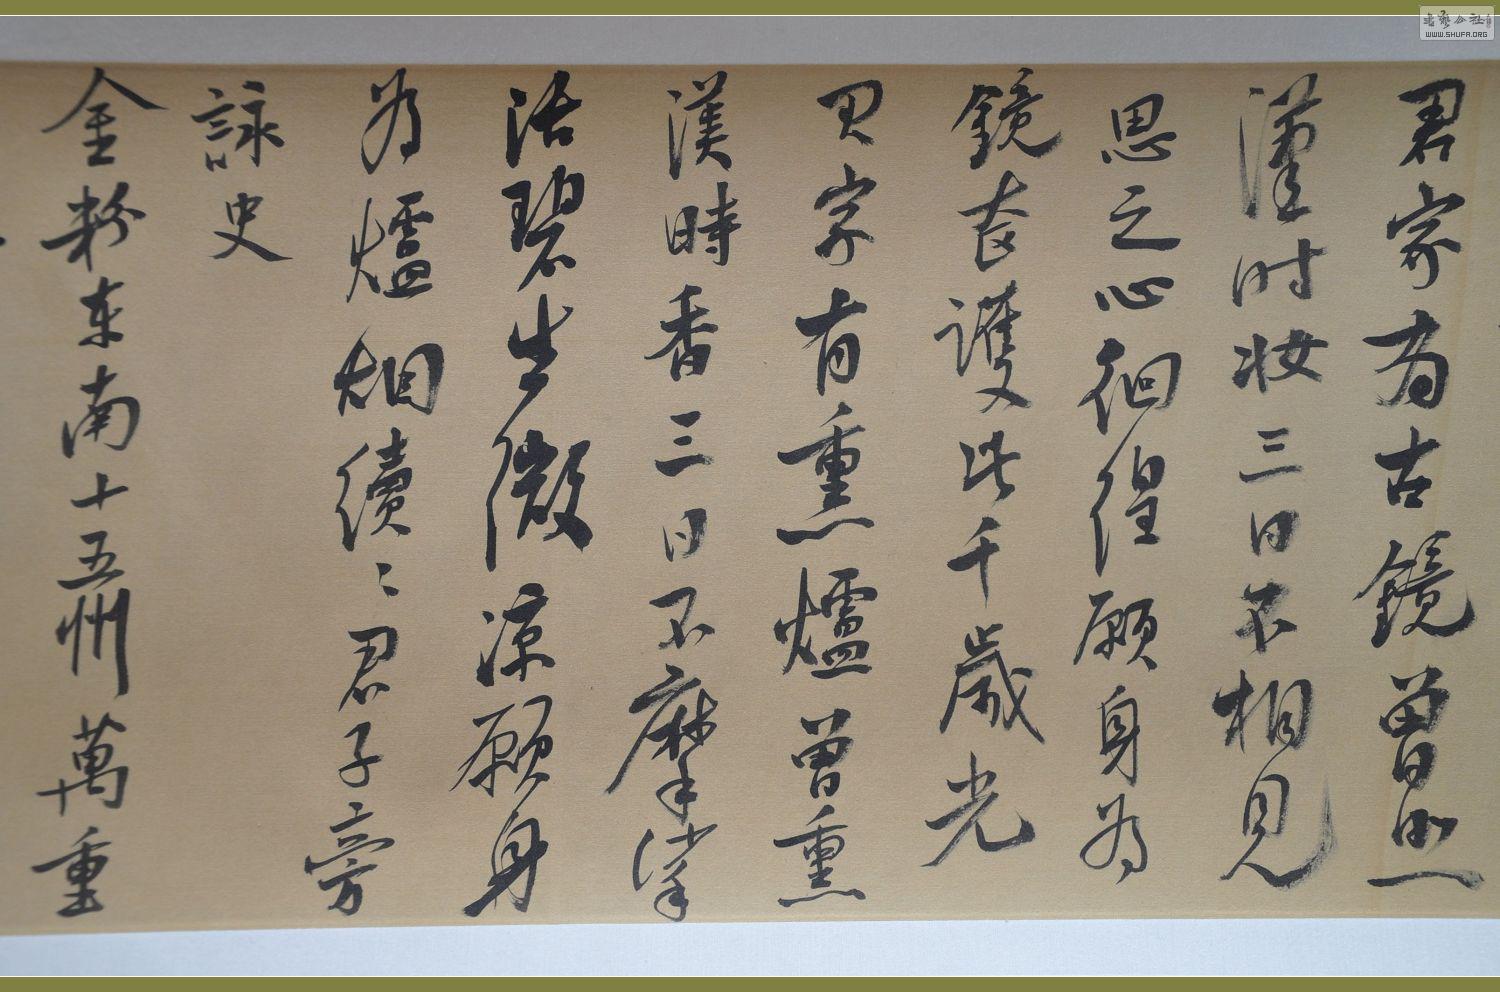 君家有古鏡曾照
漢时妆三日不相見
思之心徊徨願身為
鏡奩護此千歲光
君家有熏爐曾熏
漢時香三日不摩挲
活碧生微涼願身
為爐烟續〻君子旁
詠史
金粉东南十五州萬重
WWW.SHUFA.ORG